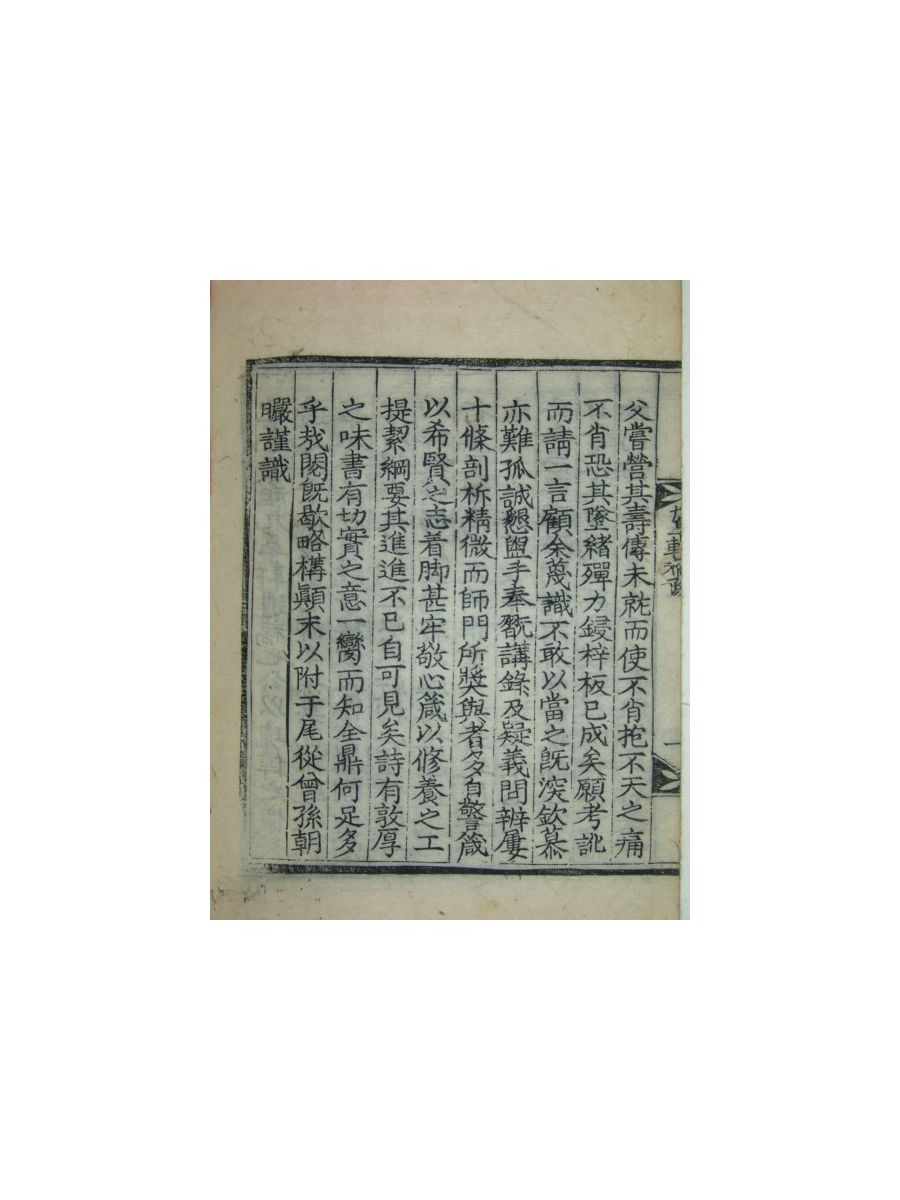 父嘗營其壽傳未就而使不肖抱不天之痛
不肖恐其墜緖殫力鋟梓板已成矣願考訛
而請一言顧余蔑識不敢以當之旣深欽慕
亦難孤誠懇盥手奉翫講錄及疑義問辨屢
十條剖析精微而師門所奬與者多自警箴
以希賢之志着脚甚牢敬心箴以修養之工
提挈綱要其進進不已自可見矣詩有敦厚
之味書有切實之意一臠而知全鼎何足多
乎哉閱旣歇略構顚末以附于尾從曾孫朝
曮謹識
一